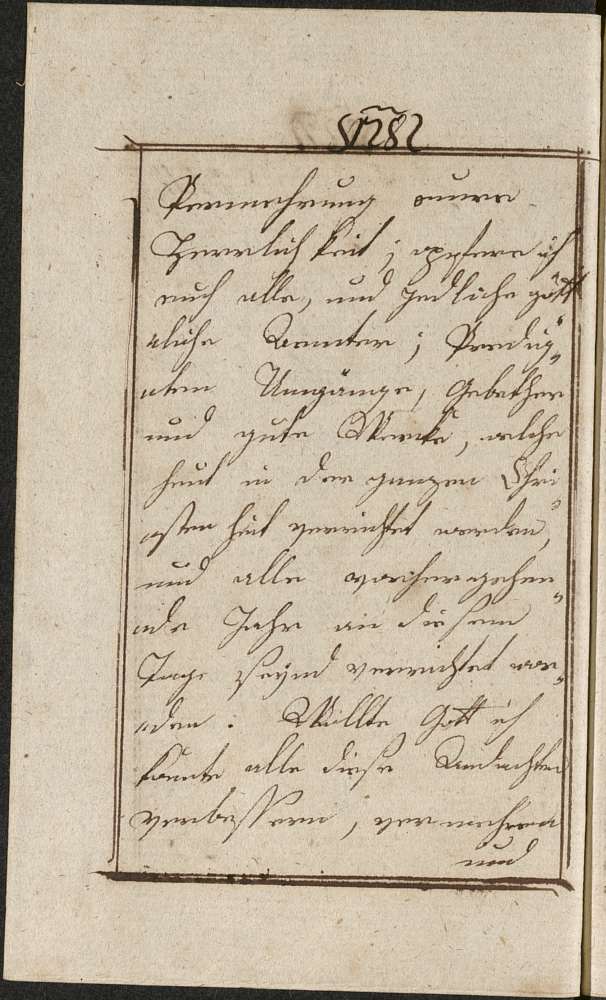 1782
Vermehrung eurer
Herrlichkeit; opfere ich
euch alle, und jedliche gött
=liche Aemter; Predig=
=ten Umgänge, Gebether
und gute Wercke, welche
heut in der ganzen Chri
=sten heit verrichtet werden,
und alle vorhergehen=
=de Jahr an diesem
Tage seynd verrichtet wor=
=den. Wollte Gott ich
könte alle diese Andachten
verbessern, vermehren
und